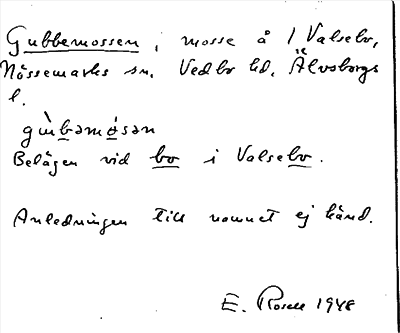 Gubbemossen, mosse å 1 Valsebo,
Nössemarks sn. Vedbo hd. Älvsborgs
l.
gùbəmåsən
Belägen vid bo i Valsebo.
Anledningen till namnet ej känd.
E. Rosell 1948